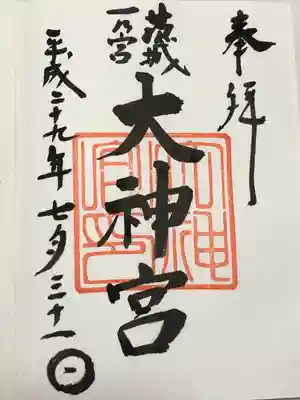 奉拝
一乃宮
大神宮
平成二十九年七月三十一日